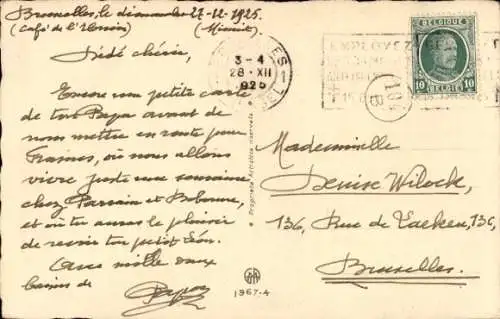 Bruxelles, le dimanche 27-12-1925.
(Café de l'Union) (Minuit)
Dédé chérie,
Encore une petite carte
de ton Papa avant de
nous mettre en route pour
Fraines, où nous allons
vivre juste une semaine
chez Parrain et Bobonne,
et où tu auras le plaisir
de revoir ton petit Léon.
Avec mille doux
baisers de
Papa
Mademoiselle
Denise Wilock,
136, Rue de Laeken, 136.
Bruxelles.
BELGIQUE
BELGIE
10 10
3-4
28-XII
1925
1
EMPLOYEZ
10
B
Propriété Artistique réservée.
1967-4